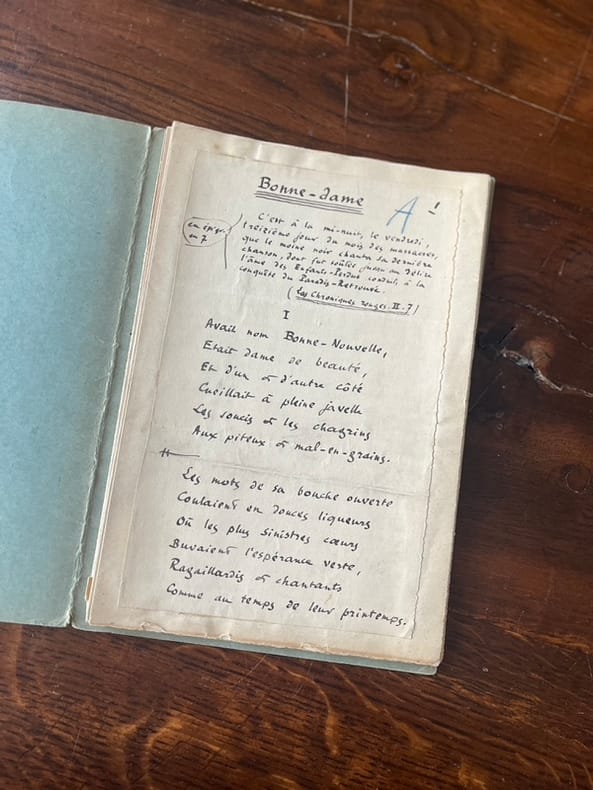 Bonne-dame
A
!
en épigr.
en 7
C'est à la mi-nuit, le vendredi,
treizième jour du mois des massacres,
que le moine noir chanta sa dernière
chanson, dont fut soûlée jusqu'au délire
l'âme des Enfants-Perdus conduits à la
Conquête du Paradis-Retrouvé.
(Les Chroniques rouges. II-7)
I
Avait nom Bonne-Nouvelle,
Etait dame de beauté,
Et d'un & d'autre côté
Cueillait à pleine javelle
Les soucis & les chagrins
Aux piteux & mal-en-grains.
Les mots de sa bouche ouverte
Coulaient en douces liqueurs
Où les plus sinistres cœurs
Buvaient l'espérance verte,
Ragaillardis & chantants
Comme au temps de leur printemps.